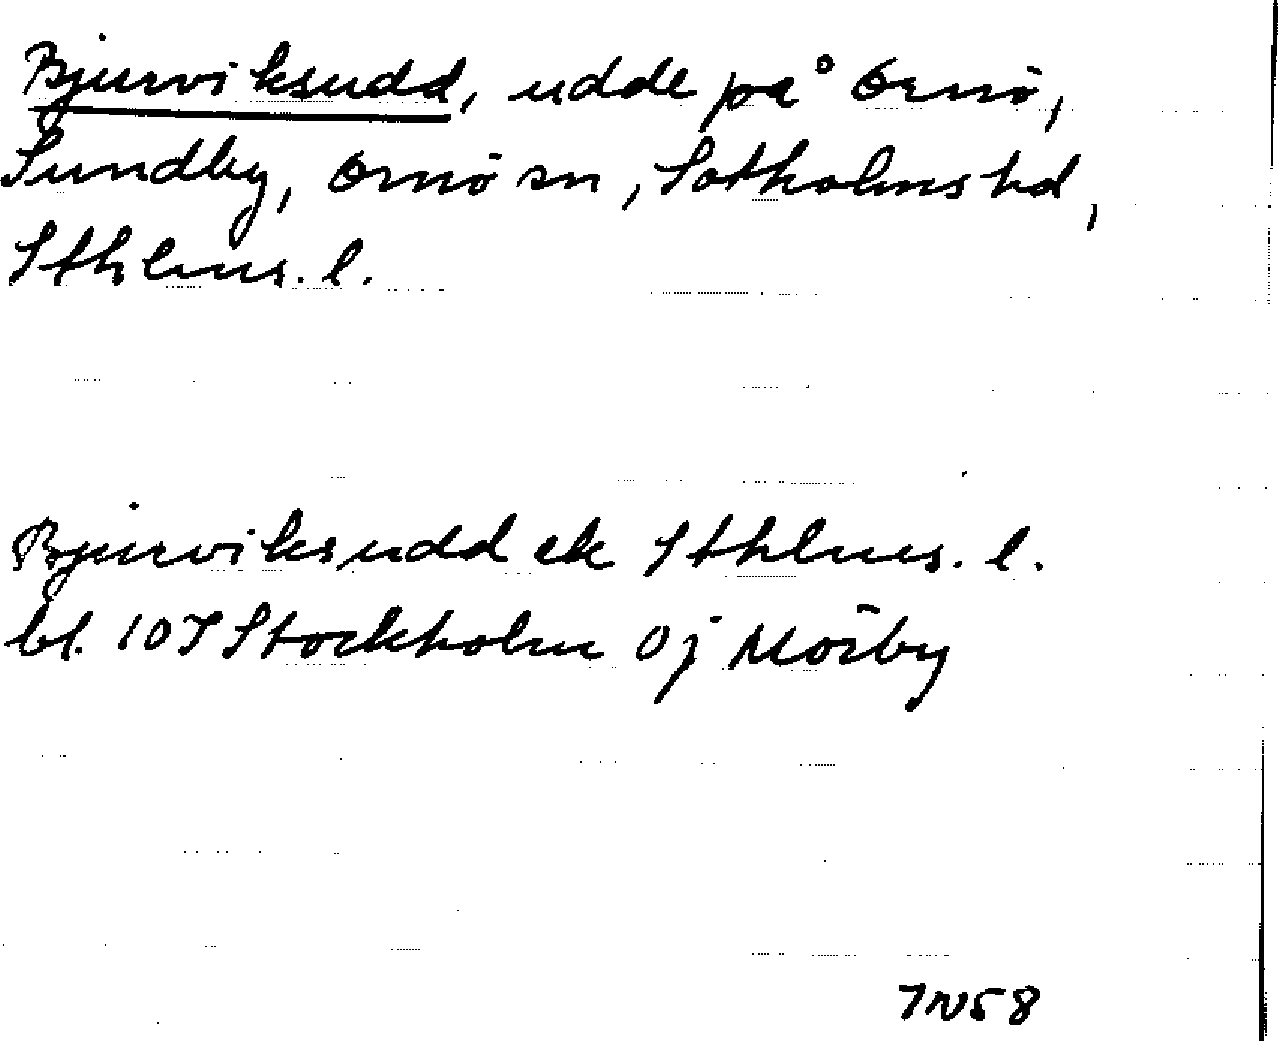 Bjurviksudd, udde på Ornö,
Sundby, Ornö sn, Sotholms hd,
Sthlms. l.
Bjurviksudd ek Sthlms. l.
bl. 10I Stockholm 0j Mörby
7N58